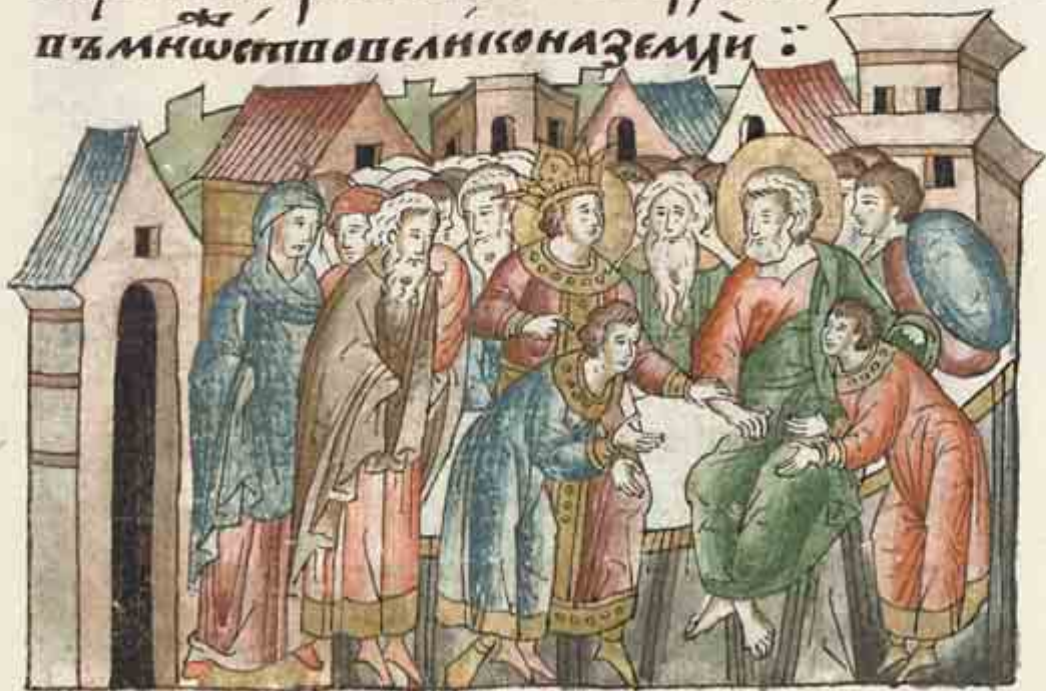 въмнѡⷤствовеликоназемли :·